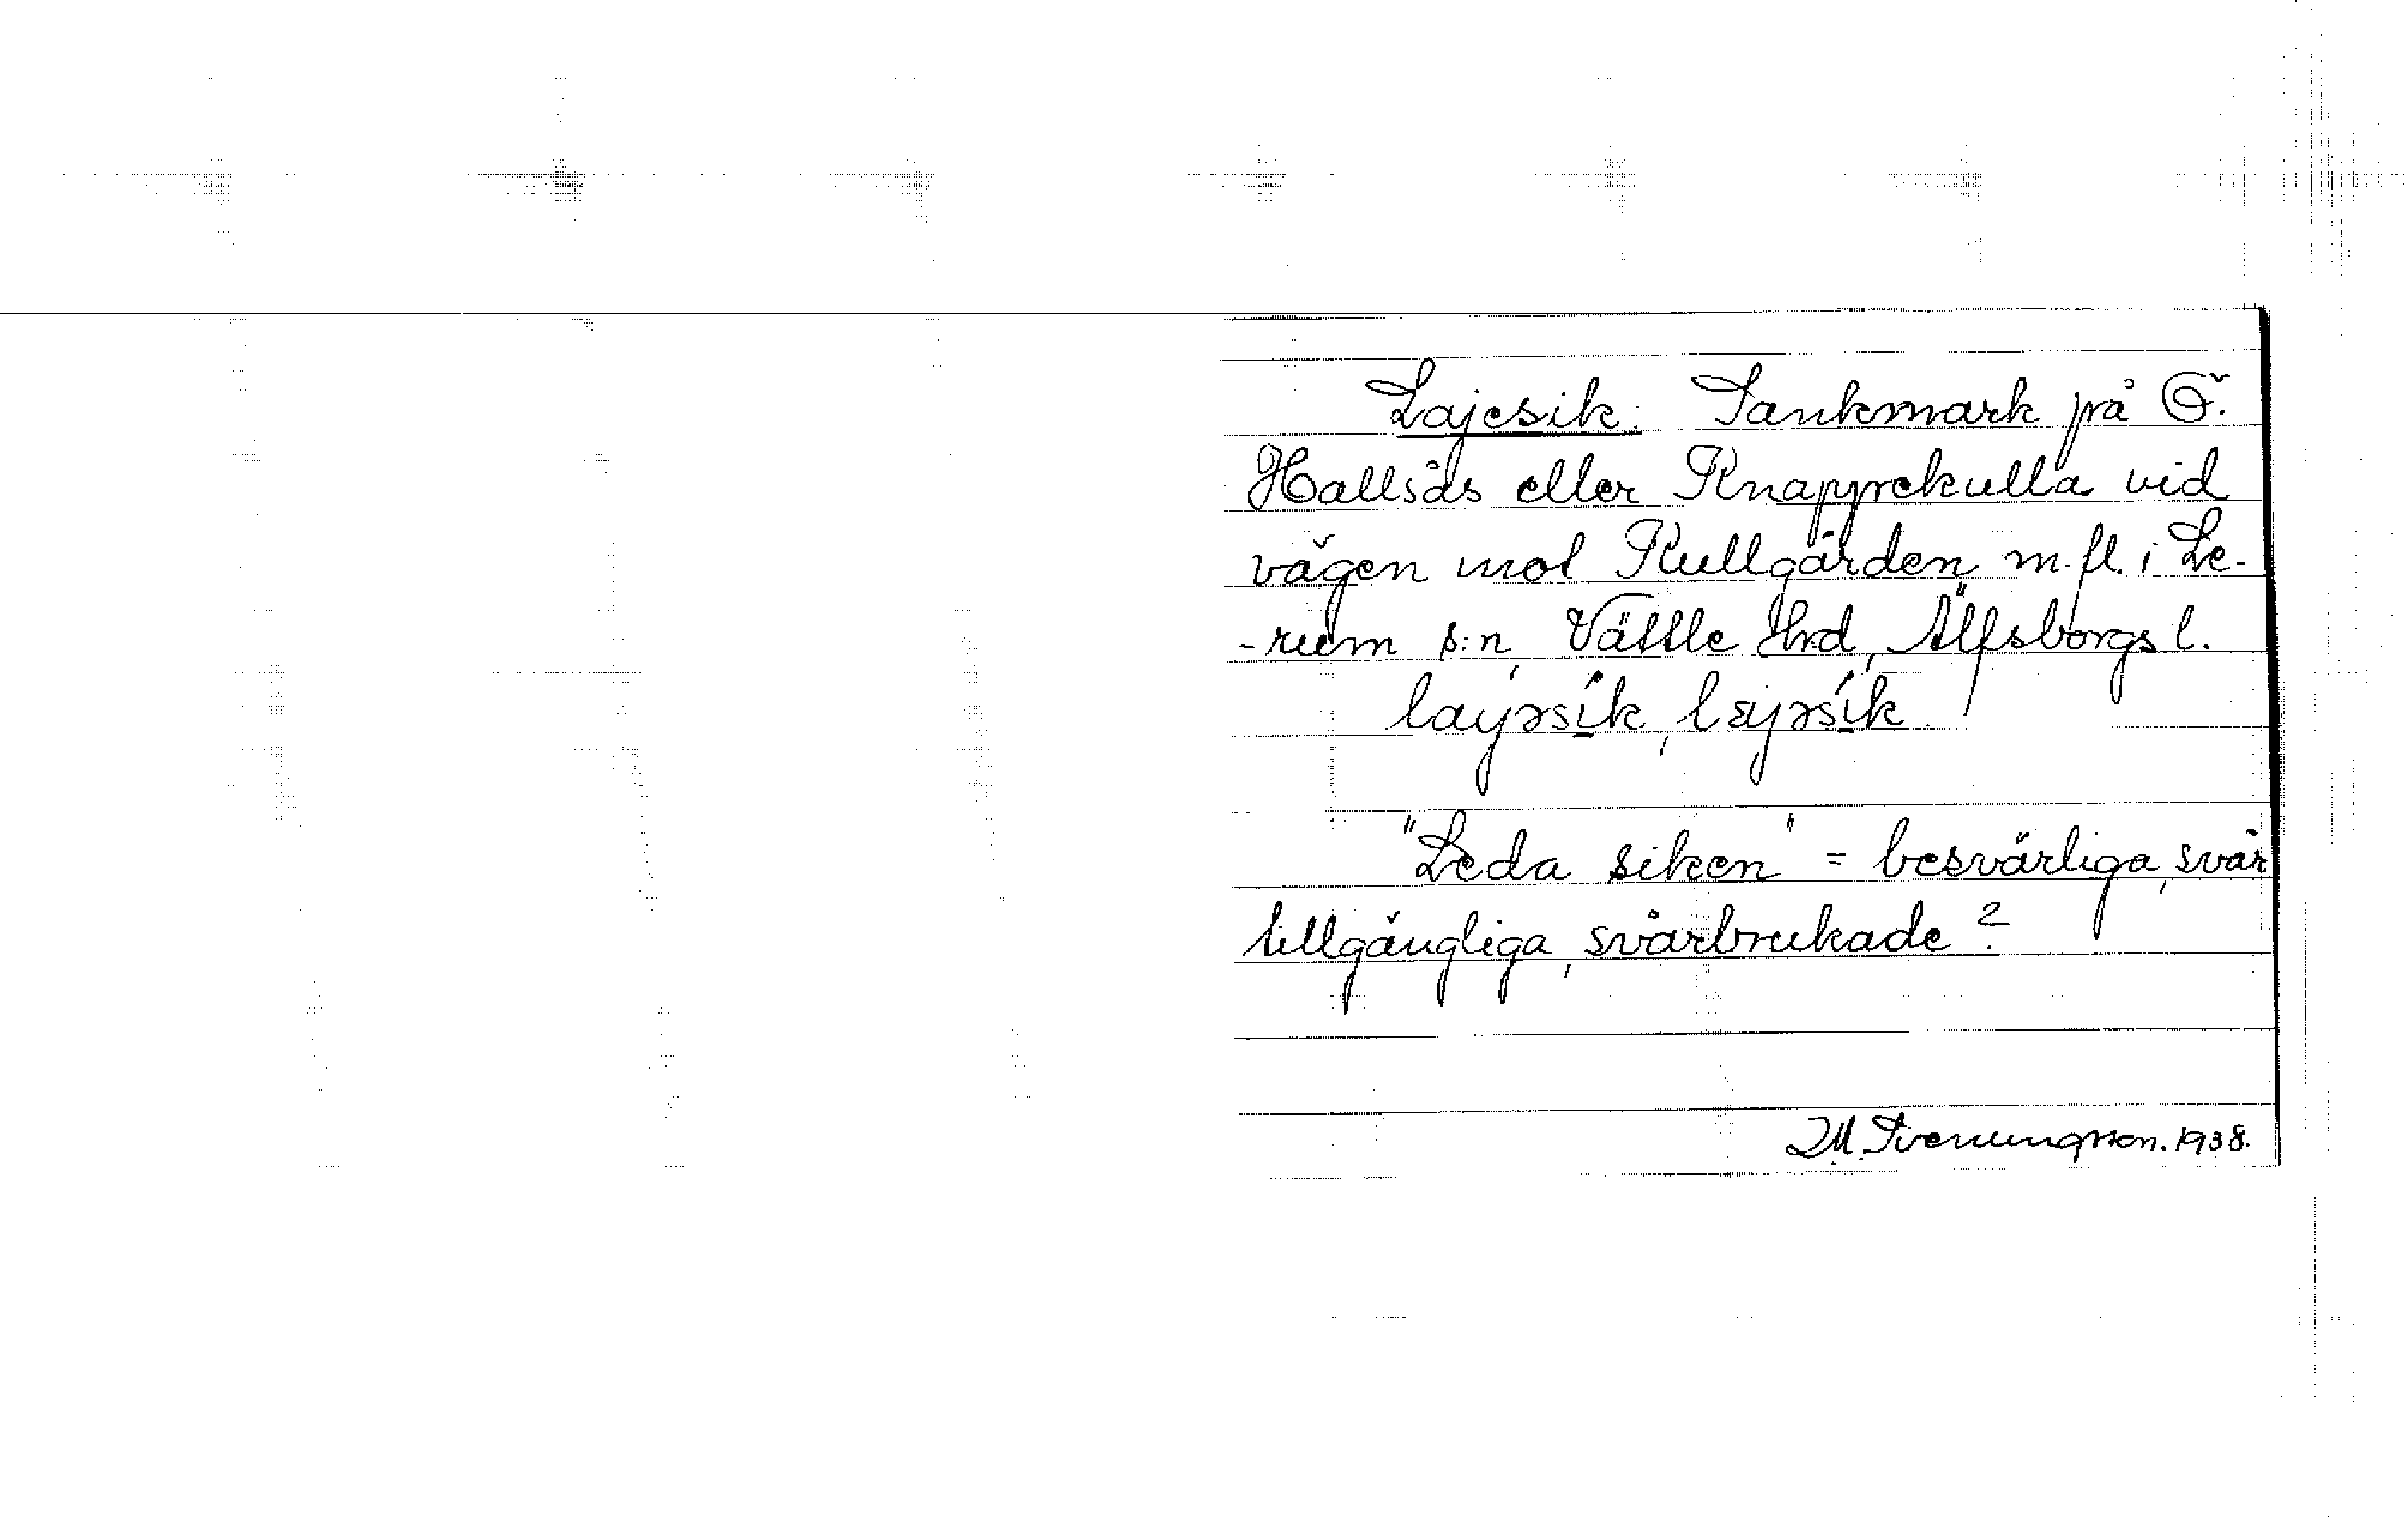 Lajesik: Sankmark på Ö.
Hallsås eller Knappekulla vid
vägen mot Kullgården m.fl. i Le-
-rum s:n, Vättle hrd, Älfsborgs l.
layɜsík, lɛyɜsík
"Leda siken" = besvärliga, svår
tillgängliga, svårbrukade?
M. Svenungsson. 1938.